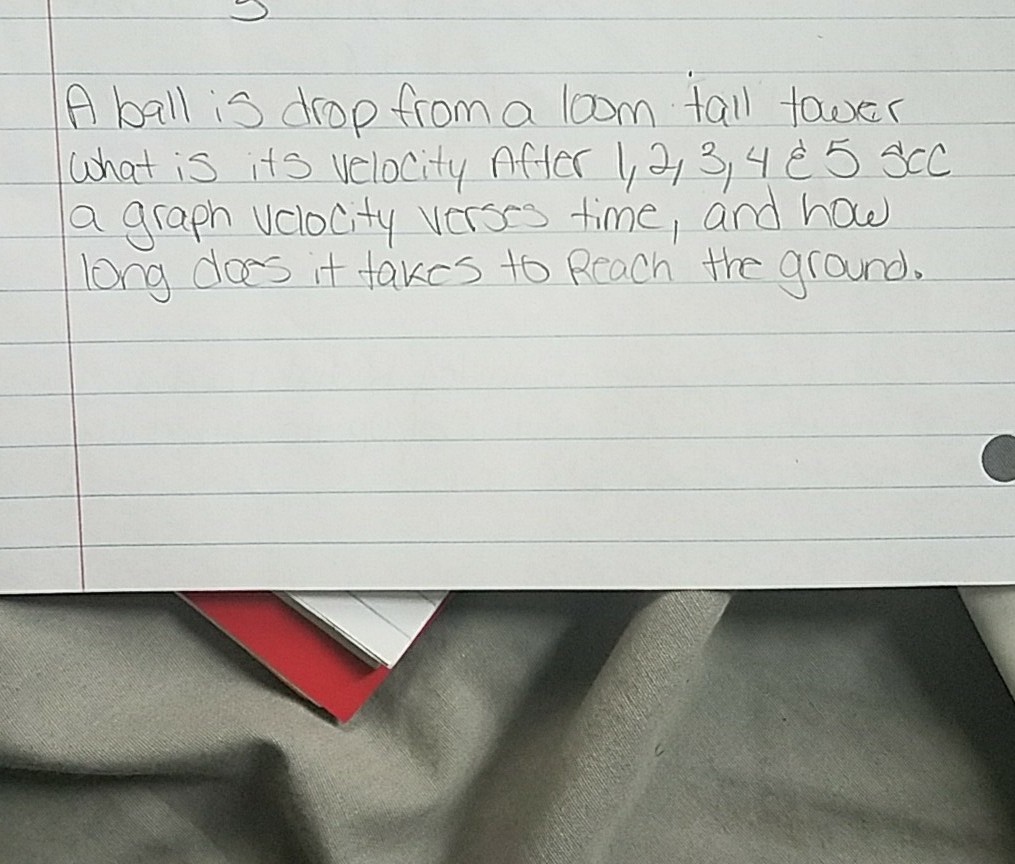 A ball is drop from a 100m tall tower
What is its velocity After 1, 2, 3, 4 & 5 sec
a graph velocity verses time, and how
long does it takes to Reach the ground.